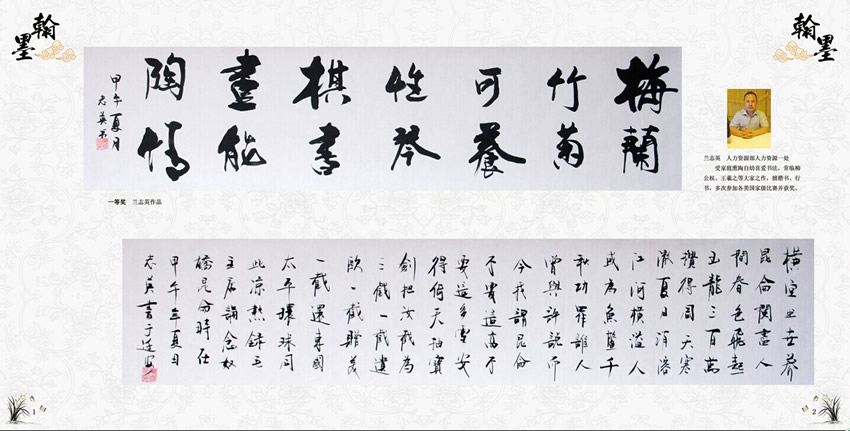 翰墨
翰墨
梅蘭
竹菊
可養
性琴
棋書
畫能
陶情
甲午夏月
志英書
一等奖 兰志英作品
兰志英 人力资源部人力资源一处
受家庭熏陶自幼喜爱书法，常临柳
公权、王羲之等大家之作，擅楷书、行
书，多次参加各类国家级比赛并获奖。
横空出世莽
昆侖閱盡人
間春色飛起
玉龍三百萬
攪得周天寒
澈夏日消溶
江河横溢人
或為魚鱉千
秋功罪誰人
曾與評説而
今我謂昆侖
不要這高不
要這多雪安
得倚天抽寶
劍把汝裁為
三截一截遺
歐一截贈美
一截還東國
太平環球同
此凉熱録毛
主席詞念奴
嬌昆侖時在
甲午年夏日
志英書于
1
2